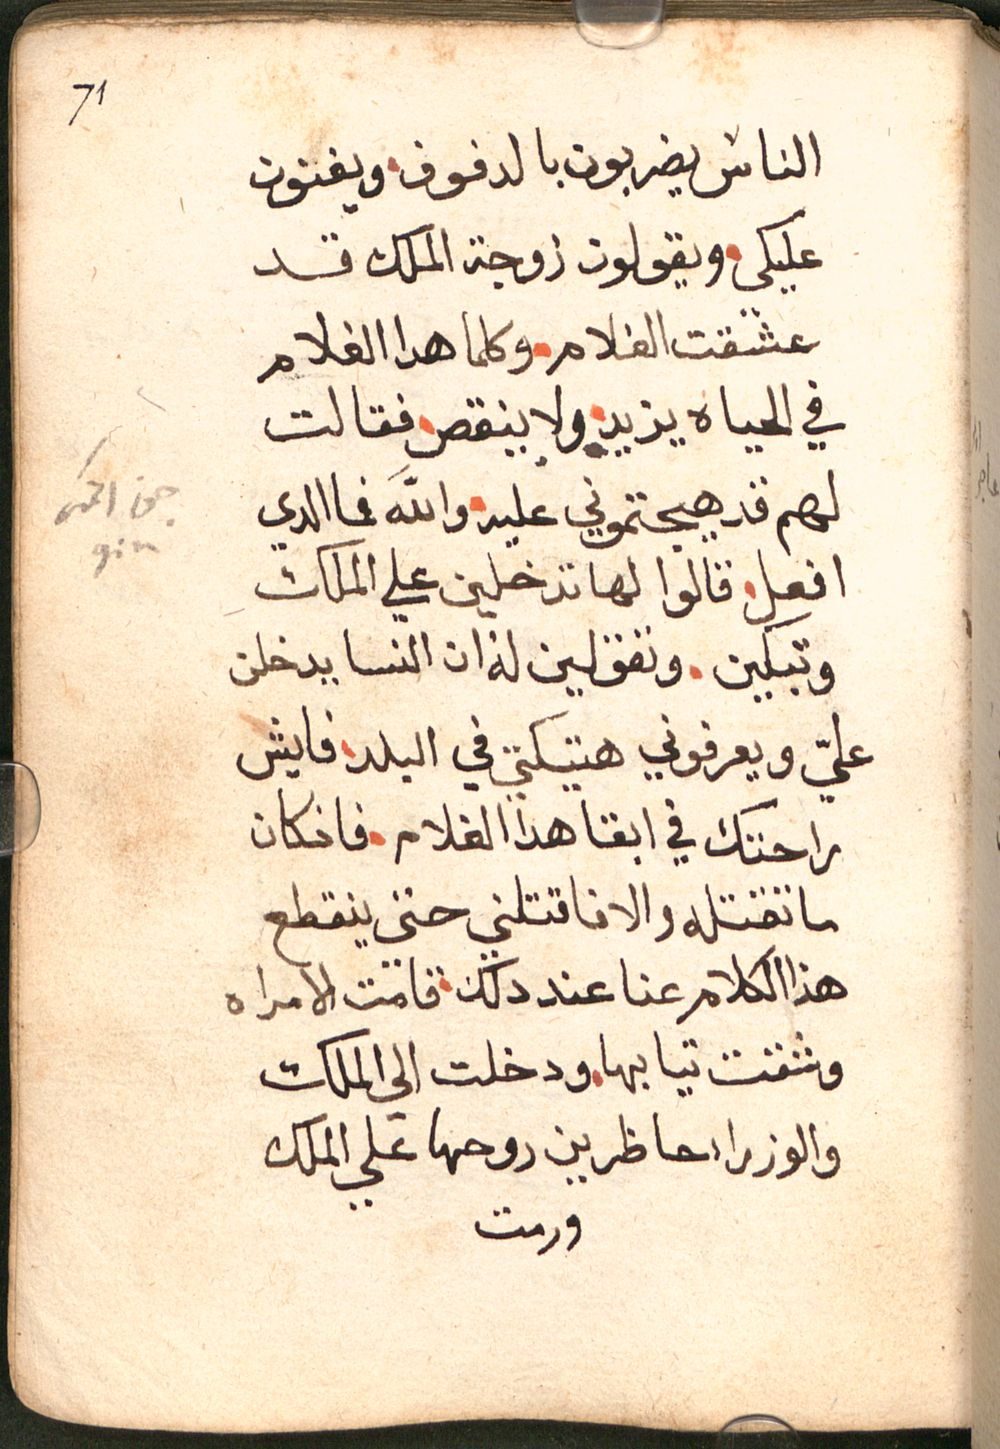 71
الناس يضربون بالدفوف ويغنون
عليكي ويقولون زوجة الملك قد
عشقت الغلام وكلما هدا الغلام
في الحياه يزيد ولا ينقص فقالت
لهم قد هيجتموني عليه والله فما الدي
افعل قالوا لها تدخلين علي الملك
وتبكين وتقولين له ان النسا يدخلن
عليّ ويعرفوني هتيكتي في البلد فايش
راحتك في ابقا هدا الغلام فان كان
ما تقتله والا فاقتلني حتى ينقطع
هذا الكلام عنا عند دلك قامت الامراه
وشقت تيابها ودخلت الي الملك
والوزراء حاظرين روحها علي الملك
ورمت
gin